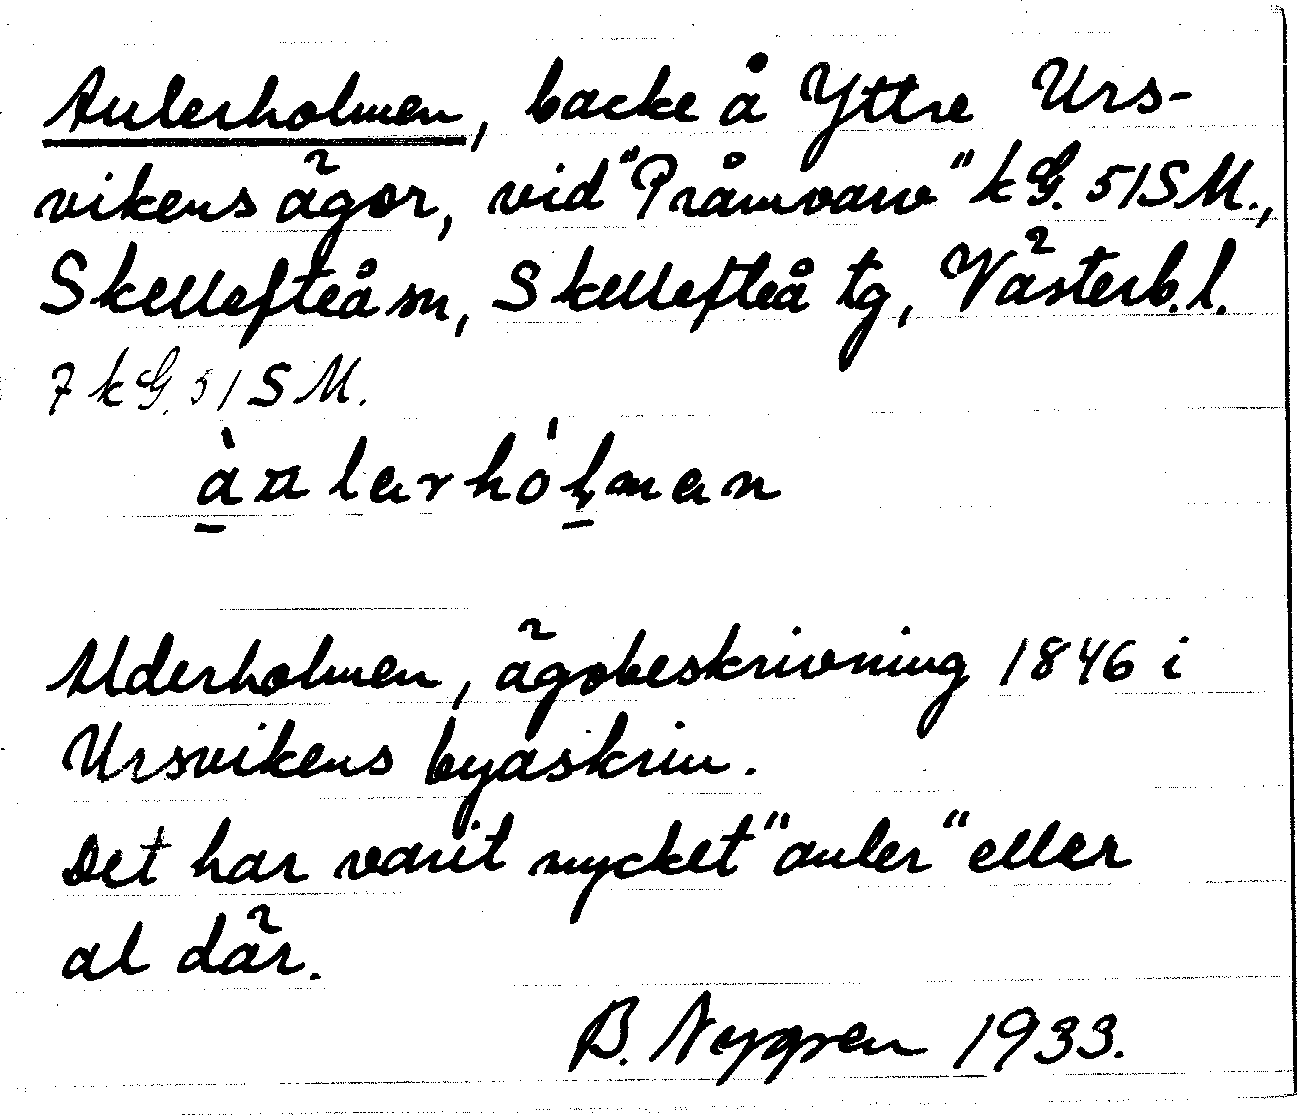 Aulerholmen, backe å Yttre Urs-
vikens ägor, vid "Pråmvarv" k G. 51 S M.,
Skellefteå sn, Skellefteå tg, Västerb. l.
7 k G. 51 S M.
Alderholmen, ägobeskrivning 1846 i
Ursvikens byaskrin.
Det har varit mycket "auler" eller
al där.
B. Nygren 1933.